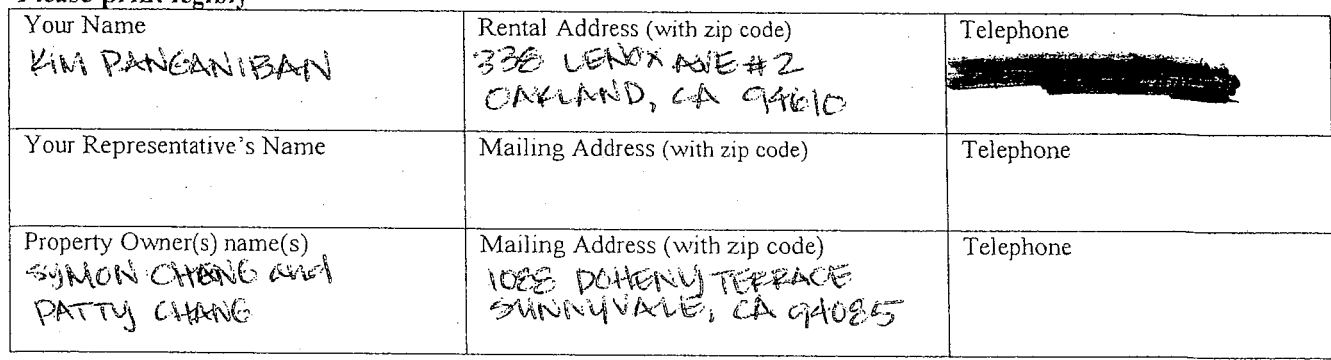 Please print legibly
Your Name
KIM PANGANIBAN
Rental Address (with zip code)
338 LENOX AVE #2
OAKLAND, CA 94610
Telephone
Your Representative's Name
Mailing Address (with zip code)
Telephone
Property Owner(s) name(s)
SYMON CHANG and
PATTY CHANG
Mailing Address (with zip code)
1088 DOHENY TERRACE
SUNNYVALE, CA 94085
Telephone